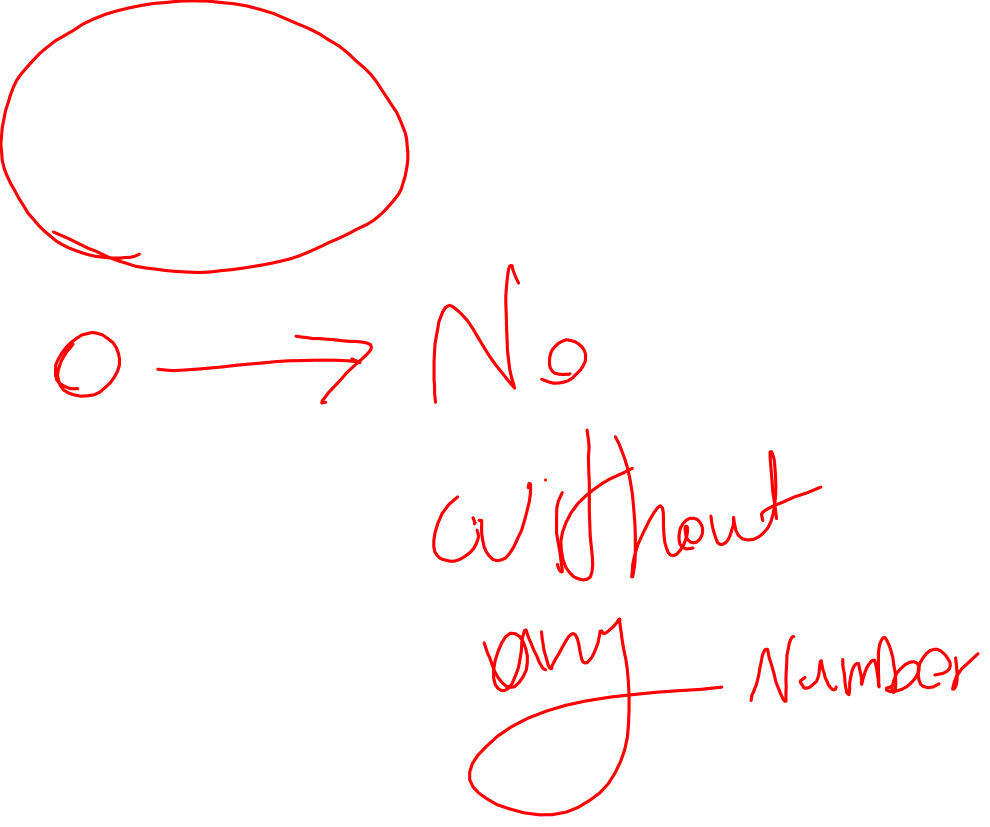 0 → No
without
any Number